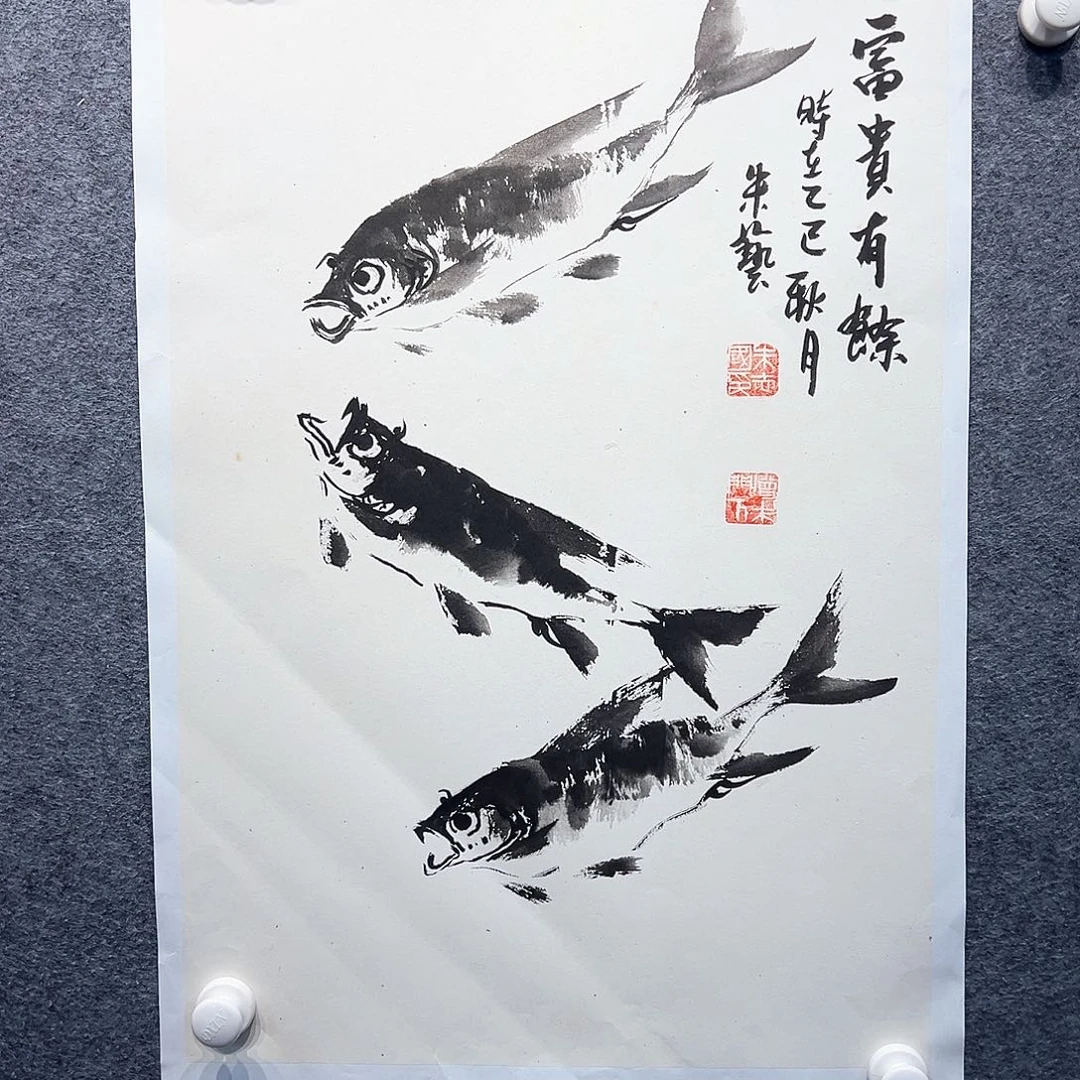 富貴有餘
時在乙巳秋月
朱藝
朱志國印